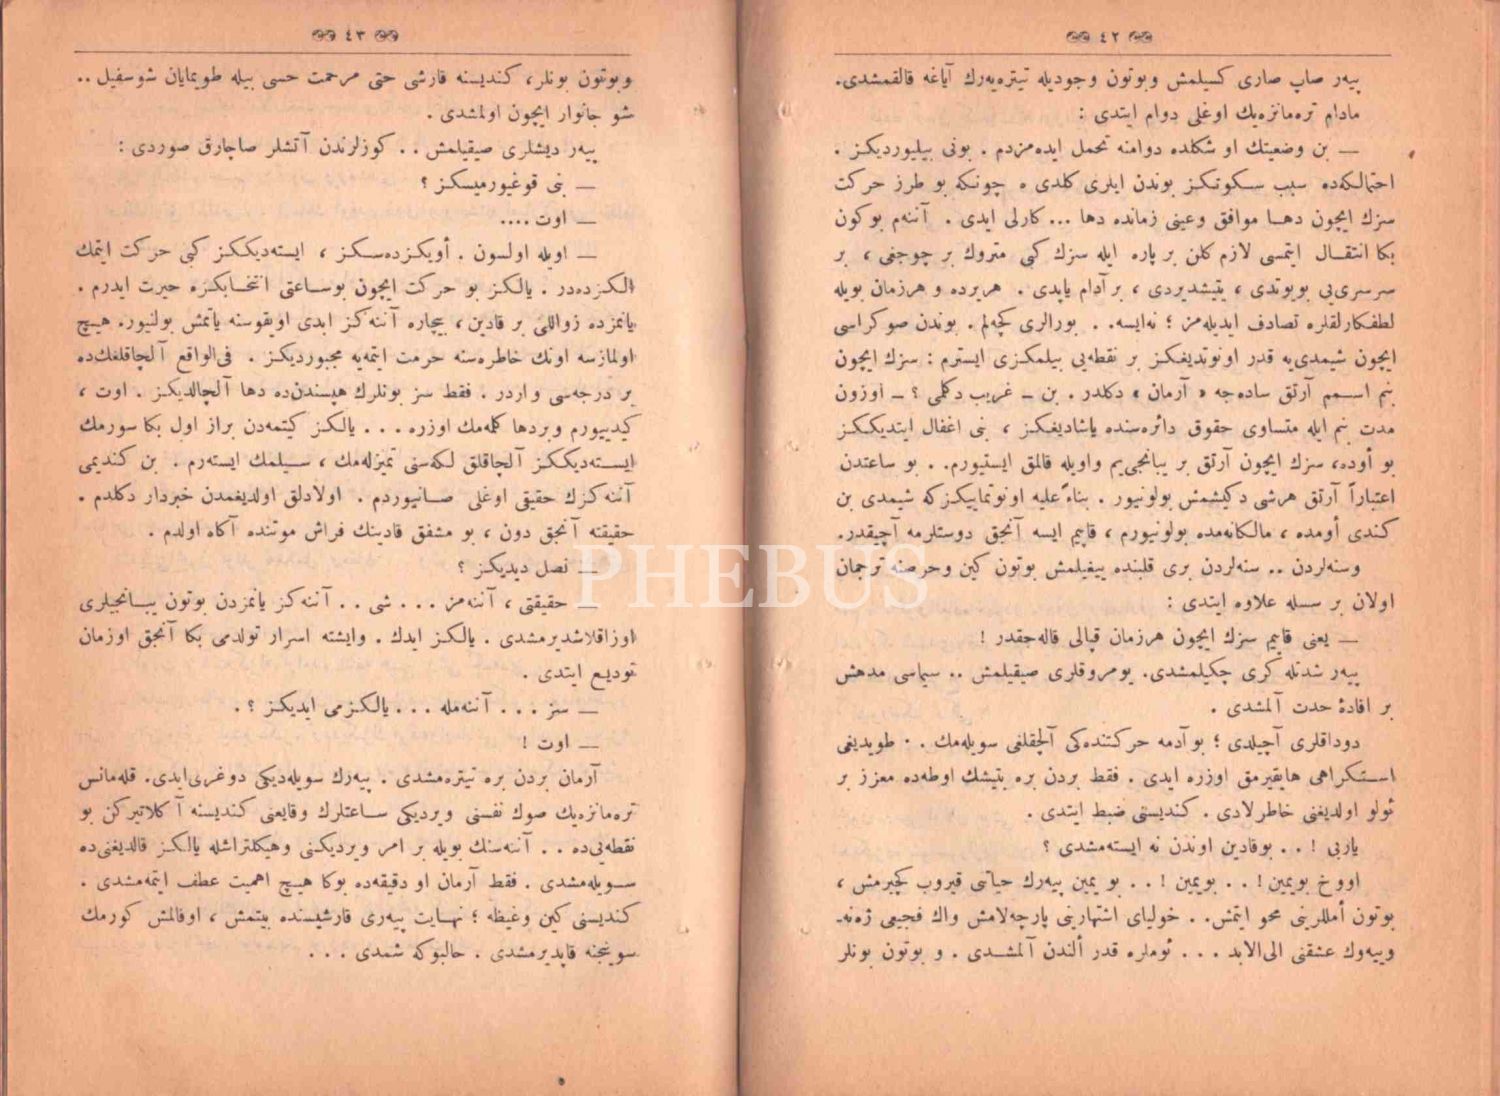 ٤٢
پیەر صاپ صاری کسیلمش وبوتون وجودیله تیترەیەرك آیاغه قالقمشدی.
مادام ترەمانزەیك اوغلی دوام ایتدی :
— بن وضعیتك او شکلده دوامنه تحمل ایدەمزدم . بونی بیلیوردیکز .
احتمالکه‌ده سبب سکوتکز بوندن ایلری کلدی ه چونکه بو طرز حرکت
سزك ایچون دهـا موافق وعینی زمانده دها ... کارلی ایدی . آننەم بوکون
بکا انتقـال ایتمسی لازم کلن بر پاره ایله سزك کبی متروك بر چوجغی ، بر
سرسری‌یی بویوتدی ، یتیشدیردی ، بر آدام یاپدی . هربرده و هرزمان بویله
لطفکارلقلره تصادف ایدیله‌مز ؛ نه‌ایسه. . بورالری کچه‌لم . بوندن صوکراسی
ایچون شیمدی‌یه قدر اونوتدیغکز بر نقطه‌یی بیلمکزی ایسترم : سزك ایچون
بنم اسـمم آرتق ساده‌جه « آرمان » دکلدر . بن ـ غریب دکلمی ؟ ـ اوزون
مدت بنم ایله متساوی حقوق دائره‌سنده یاشادیغکز ، بنی اغفال ایتدیککز
بو أوده، سزك ایچون آرتق بر یبانجی‌یم واویله قالمق ایستیورم. . بو ساعتدن
اعتباراً آرتق هرشی دکیشمش بولونیور . بناءً علیه اونوتماییکزکه شیمدی بن
کندی أومده ، مالکانه‌مده بولونیورم ، قاپیم ایسه آنجق دوستلرمه آچیقدر.
وسنه‌لردن .. سنه‌لردن بری قلبنده ییغیلمش بوتون کین وحرصنه ترجمان
اولان بر سسله علاوه ایتدی :
— یعنی قاپیم سزك ایچون هرزمان قپالی قاله‌جقدر !
پیەر شدتله کری چکیلمشدی. یومروقلری صیقیلمش .. سیماسی مدهش
بر افادۀ حدت آلمشدی .
دوداقلری آچیلدی ؛ بو آدمه حرکتنده‌کی آلچقلغی سویله‌مك . . طویدیغی
اسـتکراهی هایقیرمق اوزره ایدی . فقط بردن بره یتیشك اوطه‌ده معزز بر
ئولو اولدیغنی خاطرلادی . کندیسنی ضبط ایتدی .
یاربی ! . . بوقادین اوندن نه ایسته‌مشدی ؟
اووخ بویمین ! . . بویمین ! . . بو یمین پیەرك حیاتنی قیروب کچیرمش ،
بوتون أمللرینی محو ایتمش. . خولیای اشتهارینی پارچه‌لامش واك فجیعی ژەنه‌ـ
وییەوك عشقنی الی‌الابد . . . ئوملره قدر ألندن آلمشـدی . و بوتون بونلر
٤٣
وبوتون بونلر، کندیسنه قارشی حتی مرحمت حسی بیله طویمایان شوسفیل ..
شو جانوار ایچون اولمشدی .
پیەر دیشلری صیقیلمش . . کوزلرندن آتشلر صاچارق صوردی :
— بنی قوغیورمیسکز ؟
— اوت ....
— اویله اولسون . أویکزده‌سـکز ، ایسته‌دیککز کبی حرکت ایتمك
الکزده‌در . یالکز بو حرکت ایچون بوسـاعتی انتخابکزه حیرت ایدرم .
یانمزده زواللی بر قادین ، بیچاره آننه‌کز ابدی اویقوسنه یاتمش بولنیور. هیـچ
اولمازسه اونك خاطره‌سنه حرمت ایتمه‌یه مجبوردیکز . فی‌الواقع آلچاقلغك‌ده
بر درجه‌سی واردر . فقط سز بونلرك هپسندن‌ده دها آلچالدیکز . اوت ،
کیدییورم وبردها کلمه‌مك اوزره . . . یالکز کیتمه‌دن براز اول بکا سورمك
ایسـته‌دیککز آلچاقلق لکه‌سنی تمیزله‌مك ، سـیلمك ایسته‌رم . بن کندیمی
آننه‌کزك حقیقی اوغلی صـانیوردم . اولادلق اولدیغمدن خبردار دکلدم .
حقیقته آنجق دون ، بو مشفق قادینك فراش موتنده آکاه اولدم .
— نصل دیدیکز ؟
— حقیقتی ، آننه‌مز . . . شی . . آننه‌کز یانمزدن بوتون یبـانجیلری
اوزاقلاشدیرمشدی . یالکز ایدك . وایشته اسرار تولدمی بکا آنجق اوزمان
تودیـع ایتدی .
— سز . . . آننه‌مله . . . یالکزمی ایدیکز ؟ .
— اوت !
آرمان بردن بره تیترەمشدی . پیەرك سویله‌دیکی دوغری‌ایدی. قله‌مانس
ترەمانزەیك صوك نفسنی ویردیکی سـاعتلرك وقایعنی کندیسنه آکلاتیرکن بو
نقطه‌یی‌ده . . آننه‌سنك بویله بر امر ویردیکنی وهیکلتراشله یالکز قالدیغنی‌ده
سـویله‌مشدی . فقط آرمان او دقیقه‌ده بوکا هیـچ اهمیت عطف ایتمه‌مشدی .
کندیسنی کین وغیظه ؛ نهـایت پیەری قارشیسنده بیتمش ، اوفالمش کورمك
سوینجنه قاپدیرمشدی . حالبوکه شمدی . . .
PHEBUS